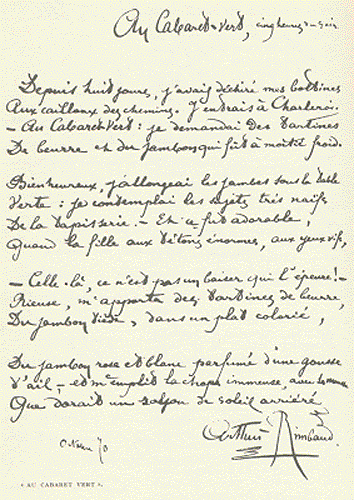 Au Cabaret-Vert, cinq heures du soir
Depuis huit jours, j'avais déchiré mes bottines
Aux cailloux des chemins. J'entrais à Charleroi.
– Au Cabaret-Vert : je demandai des tartines
De beurre et du jambon qui fût à moitié froid.
Bienheureux, j'allongeai les jambes sous la table
Verte : je contemplai les sujets très naïfs
De la tapisserie. – Et ce fut adorable,
Quand la fille aux tétons énormes, aux yeux vifs,
– Celle-là, ce n'est pas un baiser qui l'épeure ! –
Rieuse, m'apporta des tartines de beurre,
Du jambon tiède, dans un plat colorié,
Du jambon rose et blanc parfumé d'une gousse
D'ail, – et m'emplit la chope immense, avec sa mousse
Que dorait un rayon de soleil arriéré
Arthur Rimbaud
Octobre 70
« AU CABARET VERT ».